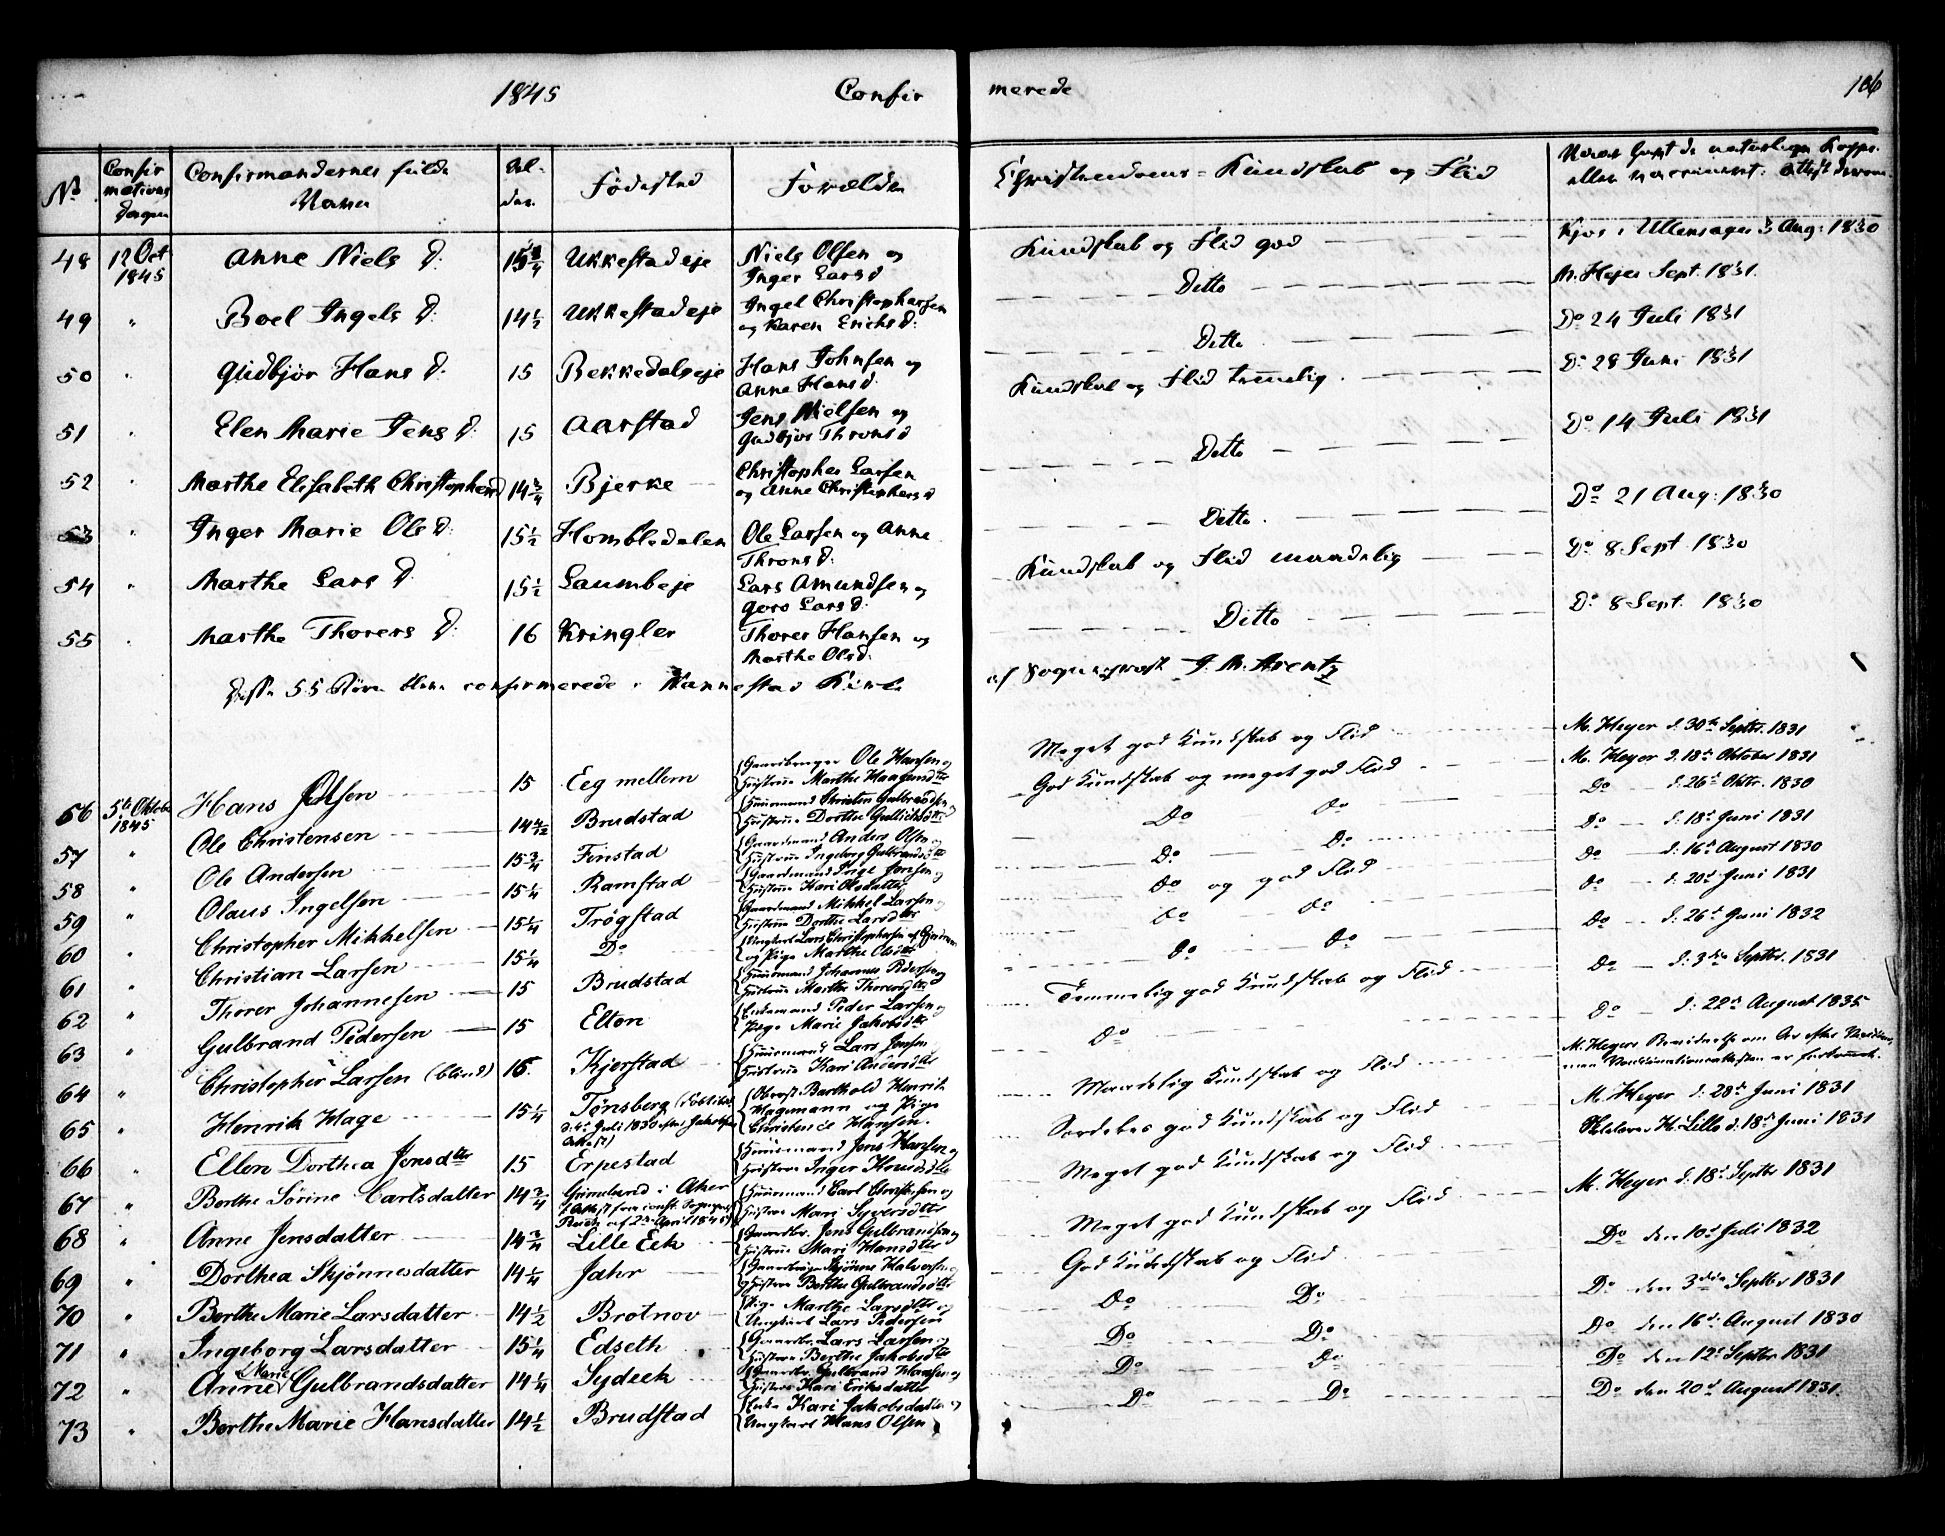 1845 Confir merede 106
No Confirmations Dagen Confirmandernes fulde Navne Alder Fødested Forældre Christendoms-Kundskab og Flid
48 12 Oct 1845 Anne Niels D. 15 3/4 Ukkestadeje Niels Olsen og Inger Lars d Kundskab og Flid god Kjos i Ullensager 3 Aug: 1830
49 " Boel Ingels D: 14 1/2 Ukkestadeje Ingel Christophersen og Karen Erichs d: Ditto M. Hejer Sept. 1831.
50 " Gudbjør Hans D. 15 Bekkedalseje Hans Johnsen og Anne Hans d: Ditto Do 24 Juli 1831
51 " Elen Marie Jens D. 15 Aarstad Jens Nielsen og Gudbjør Throns d Kundskab og Flid temelig Do 28 Juni 1831
52 " Marthe Elisabeth Christophersd 14 3/4 Bjerke Christopher Larsen og Anne Christophers d Ditto Do 14 Juli 1831
53 " Inger Marie Ole D: 15 1/2 Hombledalen Ole Larsen og Anne Throns d: Ditto Do 21 Aug: 1830
54 " Marthe Lars D 15 1/2 Laumbeje Lars Amundsen og Goro Lars d: Kundskab og Flid maadelig Do 8 Sept. 1830
55 " Marthe Thorers D. 16 Kringler Thorer Hansen og Marthe Ols d: Ditto Do 8 Sept. 1830
Disse 55 Børn bleve confirmerede i Nannestad Kirke af Sogneprest J. M. Arentz
56 5te Oktober 1845 Hans Olsen 15 Eeg mellem Gaardbruger Ole Hansen og Hustrue Marthe Haagensdtr Meget god Kundskab og Flid M. Heyer d. 30te Septbr. 1831
57 " Ole Christensen 14 Brudstad Huusmand Christen Gulbrandsen og Hustrue Dorthe God Kundskab og meget god Flid M. Heyer d. 18de Oktober 1831
58 " Ole Andersen 15 3/4 Finstad Gaardmand Anders Olsen og Hustrue Ingeborg Gulbrandsdtr Do Do Do d. 26de Oktbr. 1830
59 " Olaus Ingelsen 15 1/4 Ramstad Hustrue Kari Olsdatter Do Do Do d. 18de Juni 1831
60 " Christopher Mikkelsen 15 1/4 Trøgstad Gaardmand Mikkel Larsen og Hustrue Dorthe Larsdtr Do og god Flid Do d. 16de August 1830
61 " Christian Larsen 15 1/4 Do Ungkarl Lars Christophersen af og Pige Marthe Olsdtr Do Do Do d. 20de Juni 1831
62 " Thorer Johannesen 15 Brudstad Huusmand Johannes Pedersen og Hustrue Marthe Thorersdtr Do Do Do d. 26de Juni 1832
63 " Gulbrand Pedersen 15 Elton Enkemand Peder Larsen og Pige Marie Jakobsdtr Temmelig god Kundskab og Flid Do d. 3die Septbr. 1831
64 " Christopher Larsen (blind) 16. Kjerstad Huusmand Lars Jensen Hustrue Kari Andersdtr Do Do d. 22de August 1835
65 " Henrik Hage 15 1/4 Tønsberg d. 4de Juli 1830 Attest) Obrist Barthold Henrik Hagemann og Pige Christence Hansen. Maadelig Kundskab og Flid M. Heyers
66 " Ellen Dorthea Jensdtr 15 Erpestad Huusmand Jens Hansen og Hustrue Inger Særdeles god Kundskab og Flid M. Heyer d. 28de Juni 1831
67 " Berthe Sørine Carlsdatter 14 3/4 Grimelund i Aker Huusmand Carl Christensen og Hustrue Mari Syversdtr Meget god Kundskab og Flid H. Lille d. 18de Juni 1831
68 " Anne Jensdatter 14 3/4 Lille Eek Gaardbr. Jens Gulbrandsen og Hustrue Mari Hansdtr Meget god Kundskab og Flid M. Heyer d. 18de Septbr 1831
69 " Dorthea Skjønnesdatter 14 1/4 Jahr Gaardbruger Skjønne Halvorsen og Hustrue Berthe Gulbrandsdtr God Kundskab og Flid Do den 10de Juli 1832
70 " Berthe Marie Larsdatter 14 1/2 Brotnov Pige Marthe Larsdtr og Ungkarl Lars Pedersen Do Do Do den 3die Septbr 1831
71 " Ingeborg Larsdatter 15 1/4 Edseth Gaardbr. Lars Larsen og Hustrue Berthe Jakobsdtr Do Do Do den 16de August 1830
72 " Anne Marie Gulbrandsdatter 14 1/4 Sydeek Gaardbr. Gulbrand Hansen og Hustrue Kari Eriksdatter Do Do Do den 12te Septbr 1831
73 " Berthe Marie Hansdatter 14 1/2 Brudstad Enke Kari Jakobsdatter og Ungkarl Hans Olsen Do Do Do den 20de August 1831.